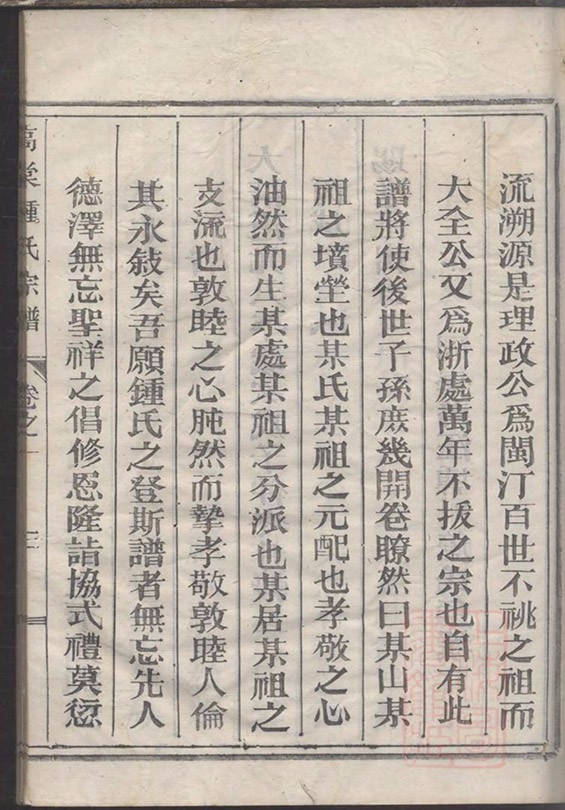 流溯源是理政公爲閩汀百世不祧之祖而
大全公又爲浙處萬年不拔之宗也自有此
譜將使後世子孫庶幾開卷瞭然曰某山某
祖之墳塋也某氏某祖之元配也孝敬之心
油然而生某處某祖之分派也某居某祖之
支流也敦睦之心肫然而摯孝敬敦睦人倫
其永敍矣吾願鍾氏之登斯譜者無忘先人
德澤無忘聖祥之倡修恩隆誼協式禮莫愆
高棠鍾氏宗譜 卷之一 三